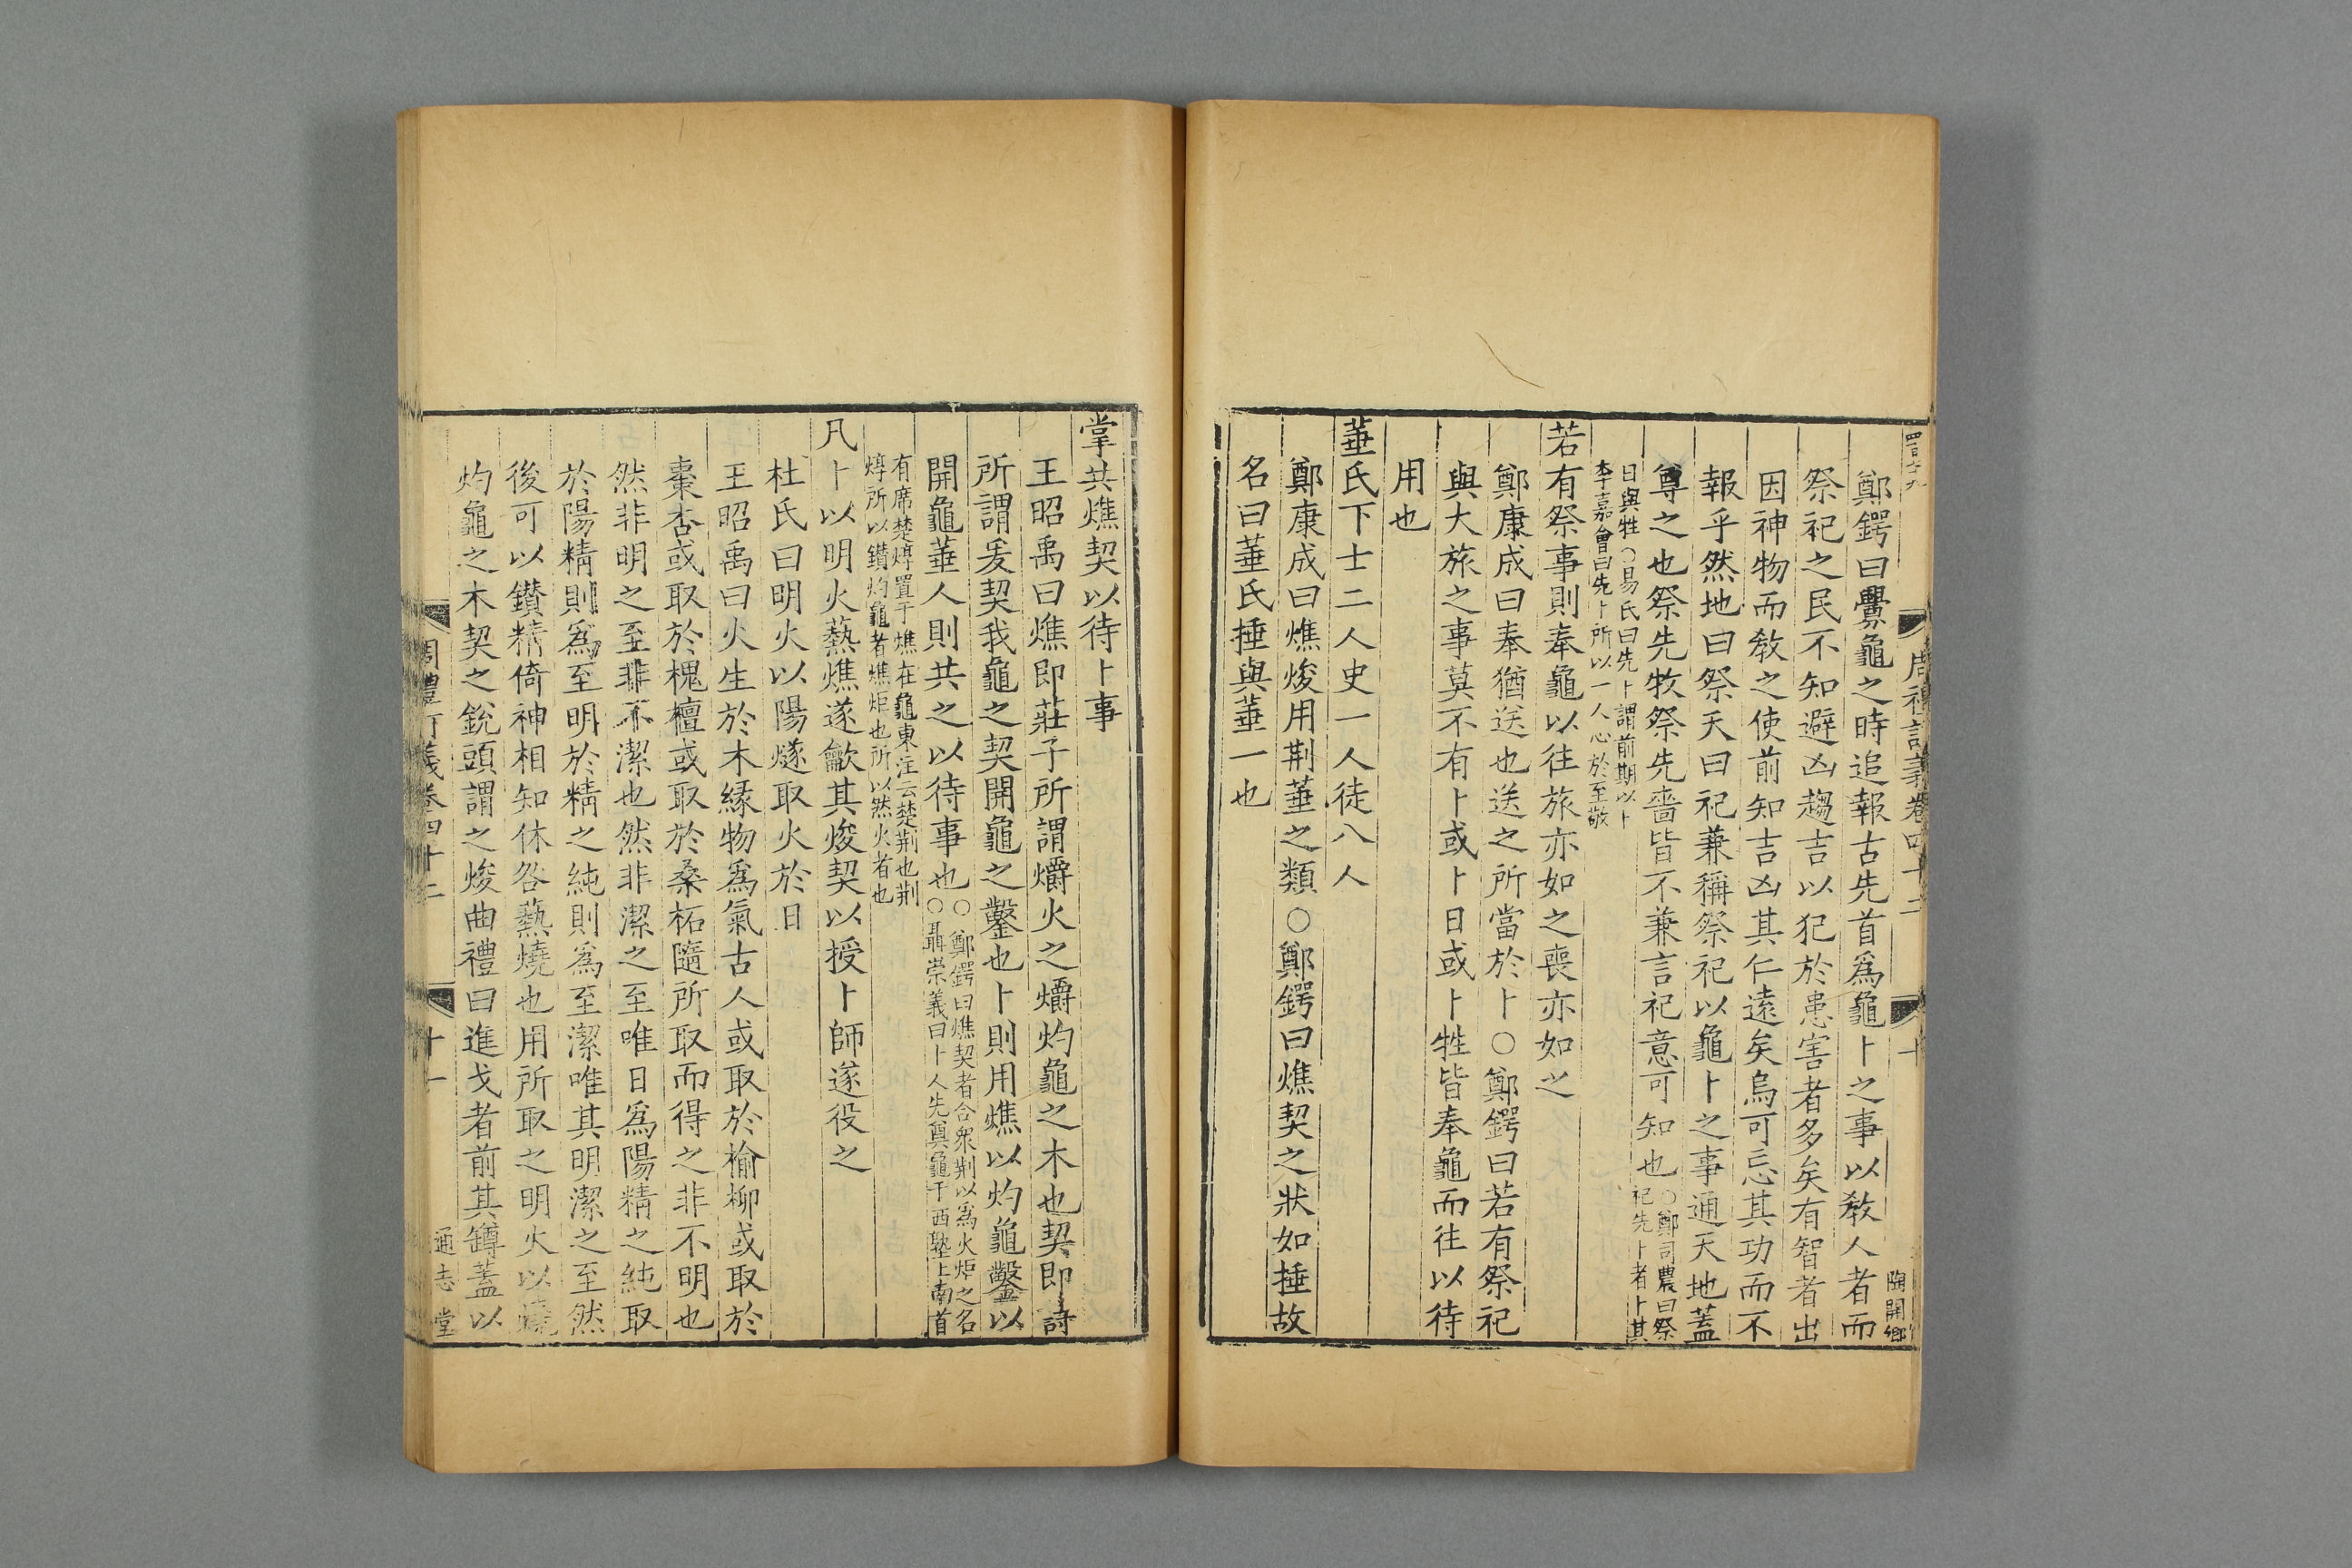 周禮訂義卷四十二
十
陶開鄉
鄭鍔曰釁龜之時追報古先首爲龜卜之事以教人者而
祭祀之民不知避凶趨吉以犯於患害者多矣有智者出
因神物而教之使前知吉凶其仁遠矣烏可忘其功而不
報乎然地曰祭天曰祀兼稱祭祀以龜卜之事通天地蓋
尊之也祭先牧祭先嗇皆不兼言祀意可知也○鄭司農曰祭
祀先卜者卜其
日與牲○易氏曰先卜謂前期以卜
李嘉會曰先卜所以一人心於至敬
若有祭事則奉龜以往旅亦如之喪亦如之
鄭康成曰奉猶送也送之所當於卜○鄭鍔曰若有祭祀
與大旅之事莫不有卜或卜日或卜牲皆奉龜而往以待
用也
菙氏下士二人史一人徒八人
鄭康成曰燋焌用荆菙之類○鄭鍔曰燋契之狀如捶故
名曰菙氏捶與菙一也
掌共燋契以待卜事
王昭禹曰燋即莊子所謂爝火之爝灼龜之木也契即詩
所謂爰契我龜之契開龜之鑿也卜則用燋以灼龜鑿以
開龜菙人則共之以待事也○鄭鍔曰燋契者合衆荆以爲火炬之名
○聶崇義曰卜人先奠龜于西塾上南首
有席楚焞置于燋在龜東注云楚荆也荆
焞所以鑽灼龜者燋炬也所以然火者也
凡卜以明火爇燋遂龡其焌契以授卜師遂役之
杜氏曰明火以陽燧取火於日
王昭禹曰火生於木緣物爲氣古人或取於榆柳或取於
棗杏或取於槐檀或取於桑柘隨所取而得之非不明也
然非明之至非不潔也然非潔之至唯日爲陽精之純取
於陽精則爲至明於精之純則爲至潔唯其明潔之至然
後可以鑽精倚神相知休咎爇燒也用所取之明火以燒
灼龜之木契之銳頭謂之焌曲禮曰進戈者前其鐏蓋以
周禮訂義卷四十二
十一
通志堂